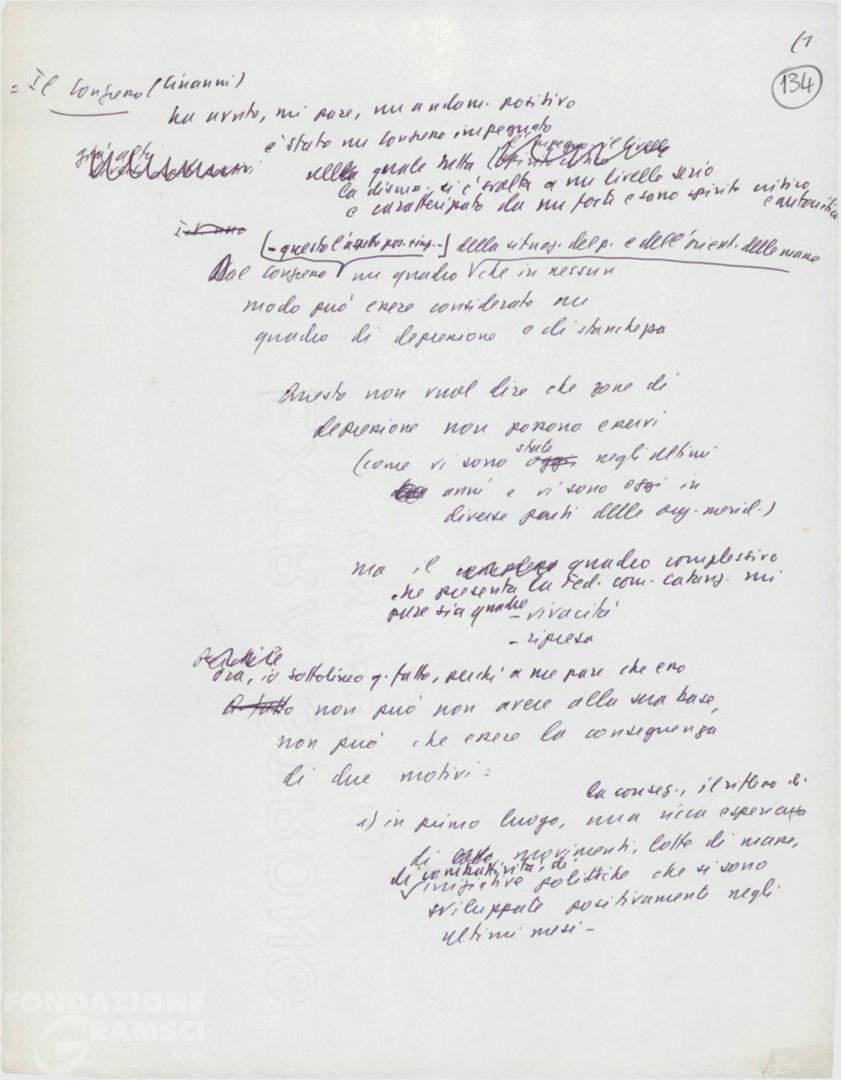 (1
134
= Il Congresso (Cinanni)
ha avuto, mi pare, un andam. positivo
è stato un Congresso impegnato
nella quale tutta
la discuss. si è svolta a un livello serio
e caratterizzato da un forte e sano spirito critico
e autocritico
(- questo l'aspetto pos. -) della situaz. del p. e dell'orient. delle masse
Dal Congresso un quadro che in nessun
modo può essere considerato un
quadro di depressione e di stanchezza
Questo non vuol dire che zone di
depressione non possono esservi
(come vi sono state negli ultimi
anni e vi sono oggi in
diverse parti delle org. merid.)
ma il quadro complessivo
che presenta la Fed. com. catanz. mi
pare sia quadro - vivacità
- ripresa
Ora, io sottolineo q. fatto, perché a me pare che esso
non può non avere alla sua base,
non può che essere la conseguenza
di due motivi:
la conseg., il riflesso di
1) in primo luogo, una ricca esperienza
di movimenti, lotte di masse,
di combattività, di
iniziative politiche che si sono
sviluppate positivamente negli
ultimi mesi -
FONDAZIONE
GRAMSCI